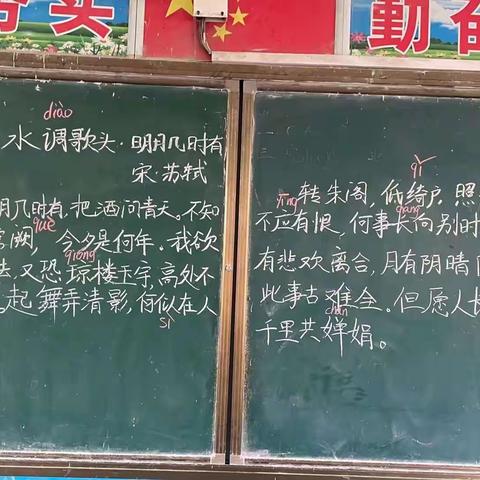 实
勤奋
diào
水调歌头·明月几时有
宋·苏轼
月几时有,把酒问青天。不知
què
阙,今夕是何年。我欲
qióng
又恐琼楼玉宇,高处不
起舞弄清影,何似在人
sì
qǐ
转朱阁,低绮户,照
yīng
不应有恨,何事长向别时
有悲欢离合,月有阴晴
此事古难全。但愿人长
chán
千里共婵娟。